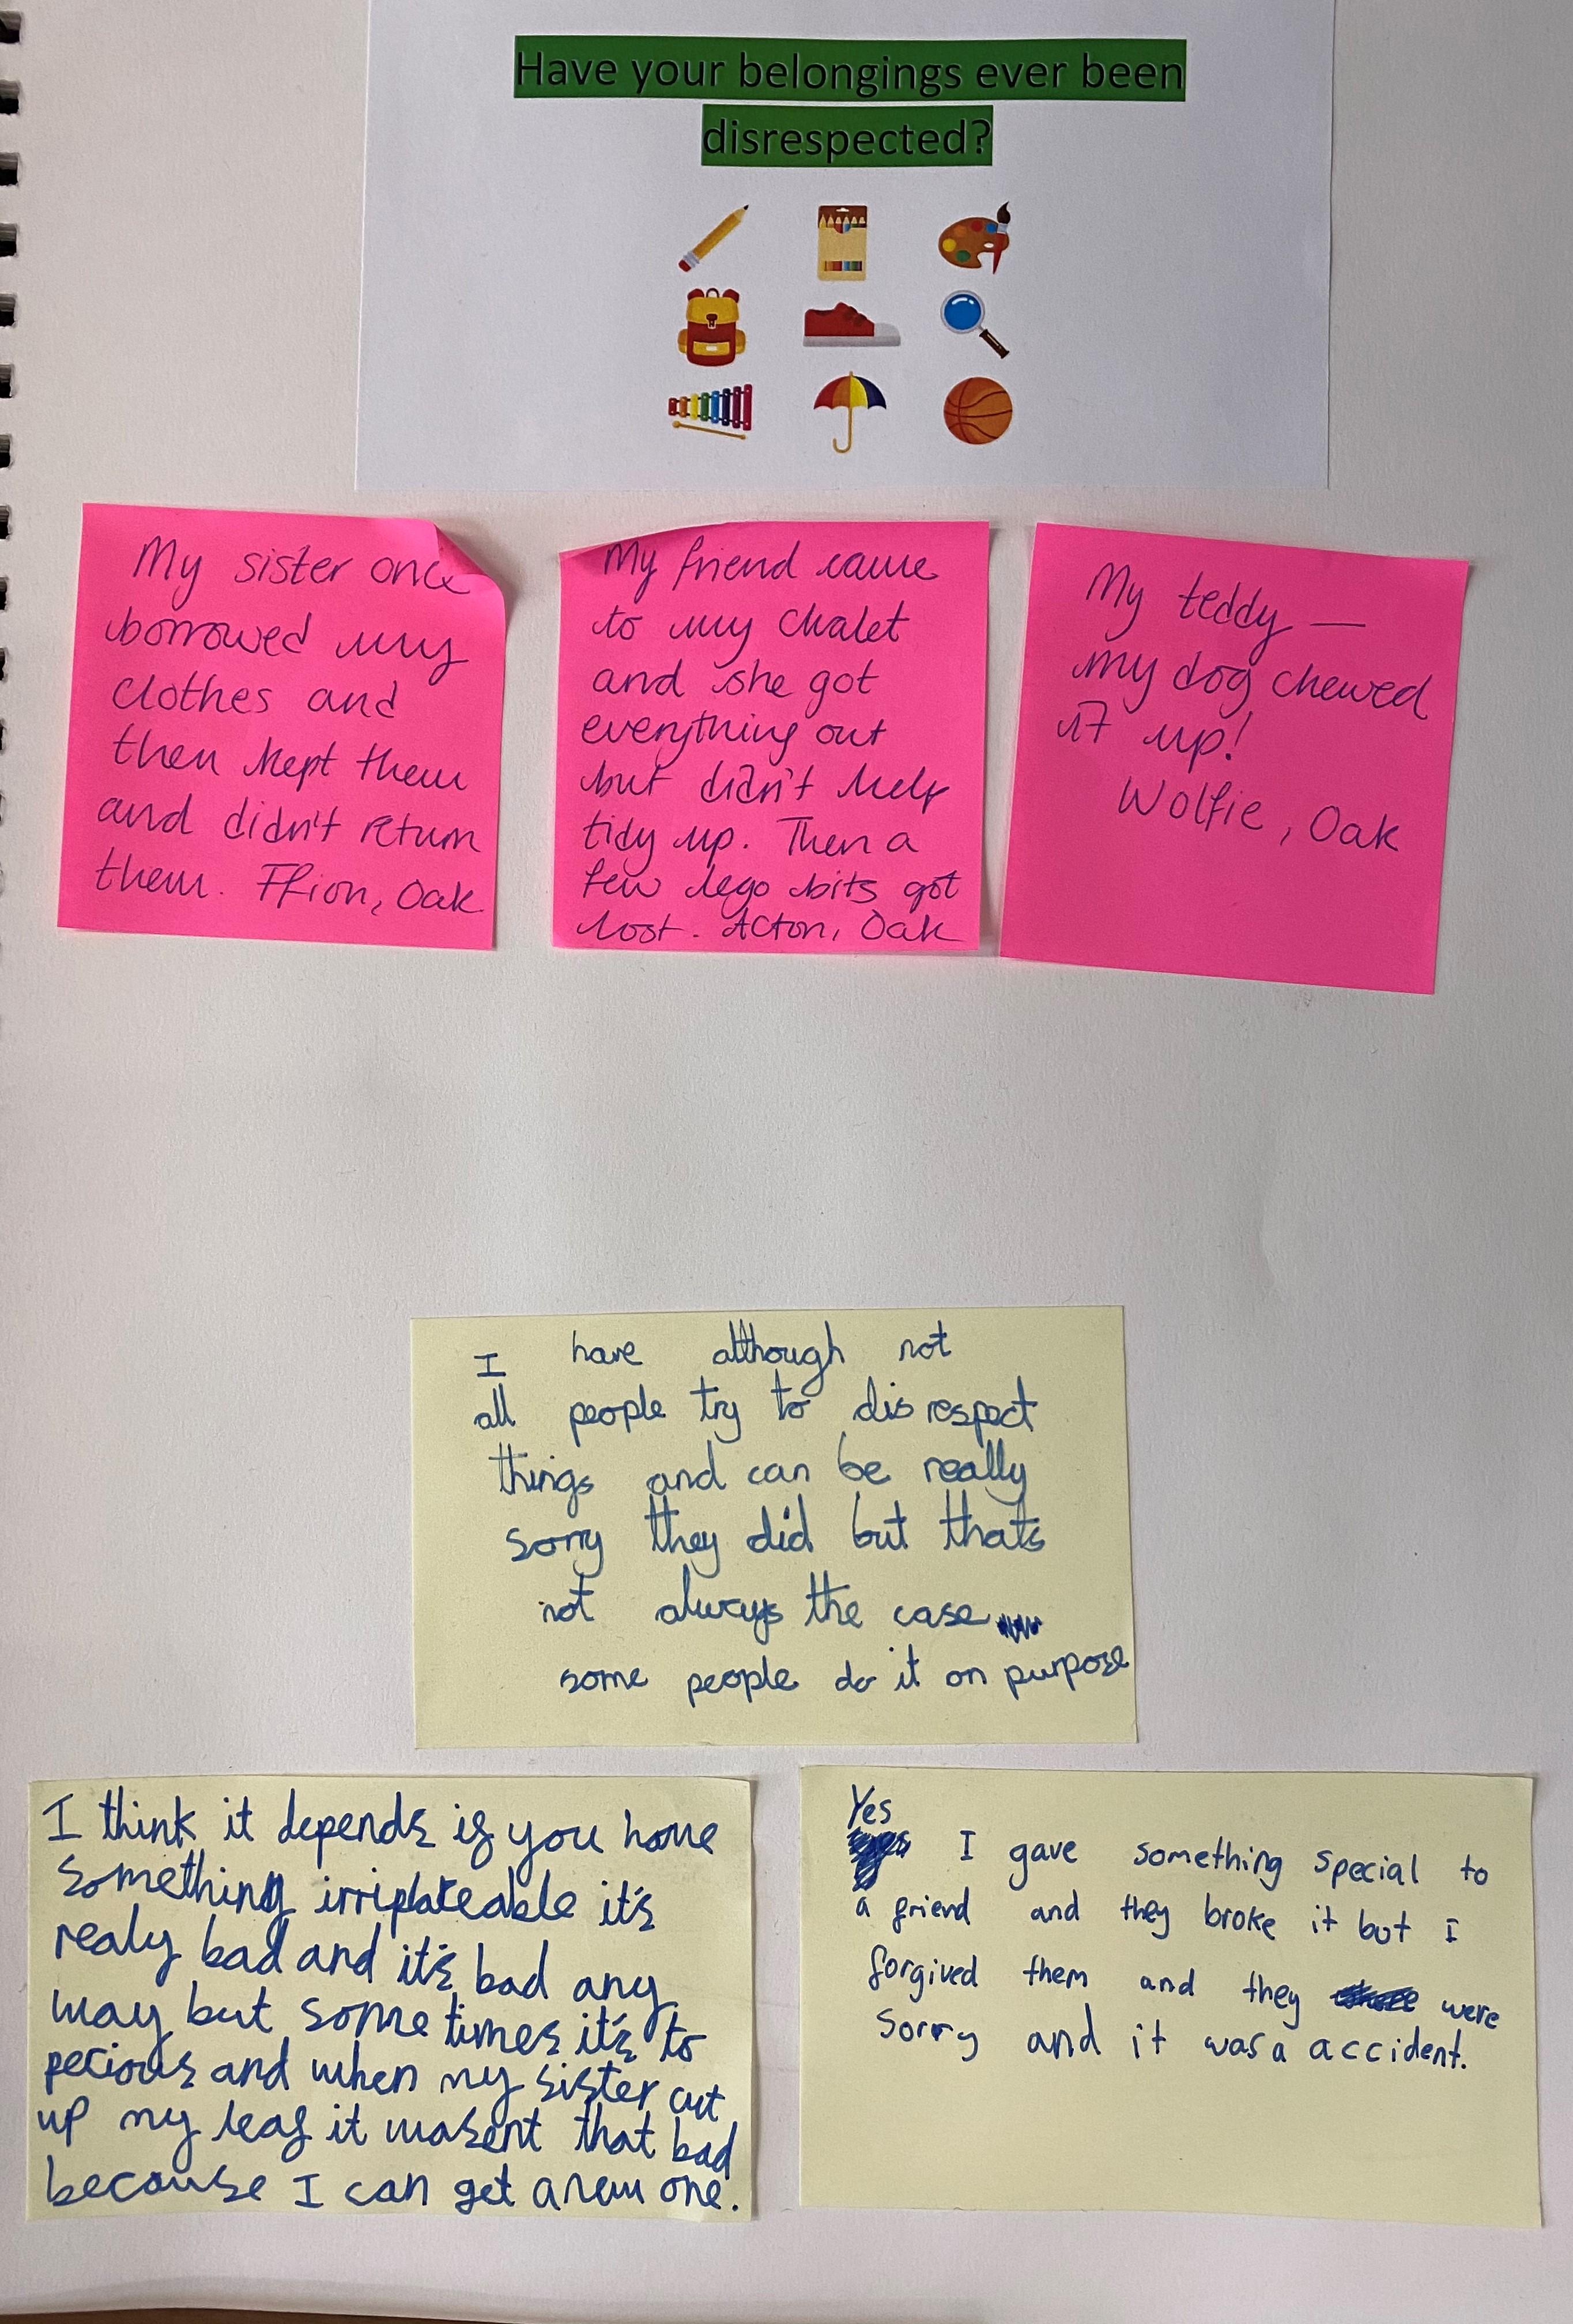 Have your belongings ever been
disrespected?
My sister once
borrowed my
clothes and
then kept them
and didn't return
them. Ffion, Oak
My friend came
to my chalet
and she got
everything out
but didn't help
tidy up. Then a
few lego bits got
lost. Acton, Oak
My teddy —
my dog chewed
it up!
Wolfie, Oak
I have although not
all people try to disrespect
things and can be really
sorry they did but thats
not always the case
some people do it on purpose
I think it depends if you have
something irriplaceable it's
realy bad and it's bad any
way but some times it's to
pecious and when my sister cut
up my leaf it wasent that bad
because I can get a new one.
Yes
I gave something special to
a friend and they broke it but I
forgived them and they were
sorry and it was a accident.